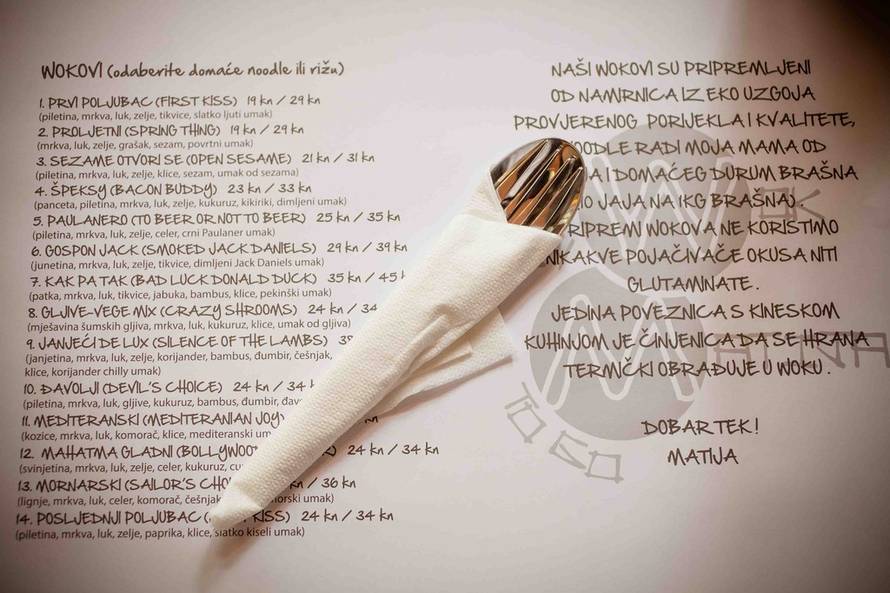 WOKOVI (odaberite domaće noodle ili rižu)
1. PRVI POLJUBAC (FIRST KISS) 19 kn / 29 kn
(piletina, mrkva, luk, zelje, tikvice, slatko ljuti umak)
2. PROLJETNI (SPRING THING) 19 kn / 29 kn
(mrkva, luk, zelje, grašak, sezam, povrtni umak)
3. SEZAME OTVORI SE (OPEN SESAME) 21 kn / 31 kn
(piletina, mrkva, luk, zelje, klice, sezam, umak od sezama)
4. ŠPEKSY (BACON BUDDY) 23 kn / 33 kn
(panceta, piletina, mrkva, zelje, kukuruz, kikiriki, dimljeni umak)
5. PAULANERO (TO BEER OR NOT TO BEER) 25 kn / 35 kn
(piletina, mrkva, luk, zelje, celer, crni Paulaner umak)
6. GOSPON JACK (SMOKED JACK DANIELS) 29 kn / 39 kn
(junetina, mrkva, luk, zelje, tikvice, dimljeni Jack Daniels umak)
7. KAK PA TAK (BAD LUCK DONALD DUCK) 35 kn / 45
(patka, mrkva, luk, tikvice, jabuka, bambus, klice, pekinški umak)
8. GLJIVE-VEGE MIX (CRAZY SHROOMS) 24 kn / 34
(mješavina šumskih gljiva, mrkva, luk, kukuruz, klice, umak od gljiva)
9. JANJEĆI DE LUX (SILENCE OF THE LAMBS)
(janjetina, mrkva, luk, zelje, korijander, bambus, đumbir, češnjak,
klice, korijander chilly umak)
10. ĐAVOLJI (DEVIL'S CHOICE) 24 kn / 34
(piletina, mrkva, luk, gljive, kukuruz, bambus, đumbir,
11. MEDITERANSKI (MEDITERANIAN JOY)
(kozice, mrkva, luk, komorač, klice, mediteranski
12. MAHATMA GLADNI 24 kn / 34 kn
(svinjetina, mrkva, luk, zelje, celer, kukuruz,
13. MORNARSKI (SAILOR'S / 36 kn
(lignje, mrkva, luk, celer, komorač, umak)
14. POSLJEDNJI POLJUBAC KISS) 24 kn / 34 kn
(piletina, mrkva, luk, zelje, paprika, klice, slatko kiseli umak)
NAŠI WOKOVI SU PRIPREMLJENI
OD NAMIRNICA IZ EKO UZGOJA
PROVJERENOG PORIJEKLA I KVALITETE,
RADI MOJA MAMA OD
I DOMAĆEG DURUM BRAŠNA
JAJA NA 1KG BRAŠNA).
WOKOVA NE KORISTIMO
NIKAKVE POJAČIVAČE OKUSA NITI
GLUTAMINATE.
JEDINA POVEZNICA S KINESKOM
KUHINJOM JE ČINJENICA DA SE HRANA
TERMIČKI OBRAĐUJE U WOKU.
DOBAR TEK!
MATIJA